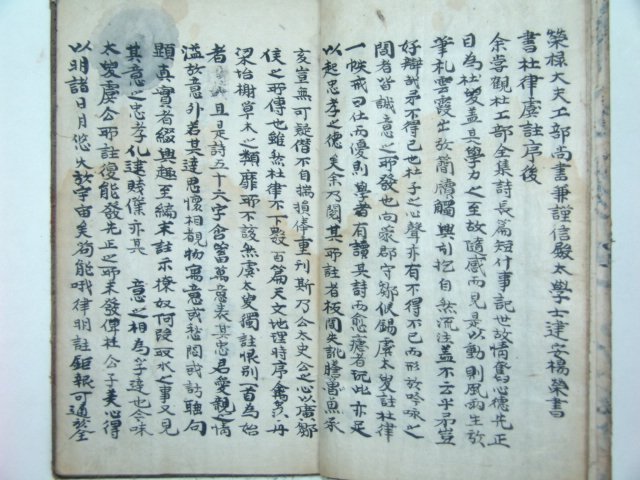 榮祿大夫工部尚書兼謹信殿太學士建安楊榮書
書杜律虞註序後
余嘗觀杜工部全集詩長篇短什事記世故情寫心德先正
目為杜史蓋其學力之至故隨感而見是以動則風雨生放
筆札雲霞出於簡牘觸興引抱自然流注蓋不云乎弟豈
好辯哉弟不得已也杜子之心聲亦有不得不已而形於吟詠之
間者當誠意之所發也向蒙郡守鄒侯錫虞太史註杜律
一帙戒曰仕而優則學者有讀其詩而愈瘧者玩此亦足
以起忠孝之德矣余乃閱其所註者板間失訛謄魯魚承
亥豈無可疑僭不自揣損俸重刊斯乃公太史公之心以廣鄒
侯之所傳也雖然杜律不下數百篇天文地理時序禽獸丹
梁怡榭草木之類靡所不該然虞太史獨註恨別一首為始
者 且是詩五十六字含蓄萬意表其忠君愛親之情
溢於意外若其達思懷相覩物寓意或愁悶或訪聯句
題真實者綴興趣至編末註示獠奴何陵取水之事又見
其意之忠孝化逮賤僕亦其 意之相為孚達也令味
太史虞公所註復能發先正之所未發俾杜公子美心得
以明諸日月悠久於宇宙矣苟能哦律明註鉅報可通於